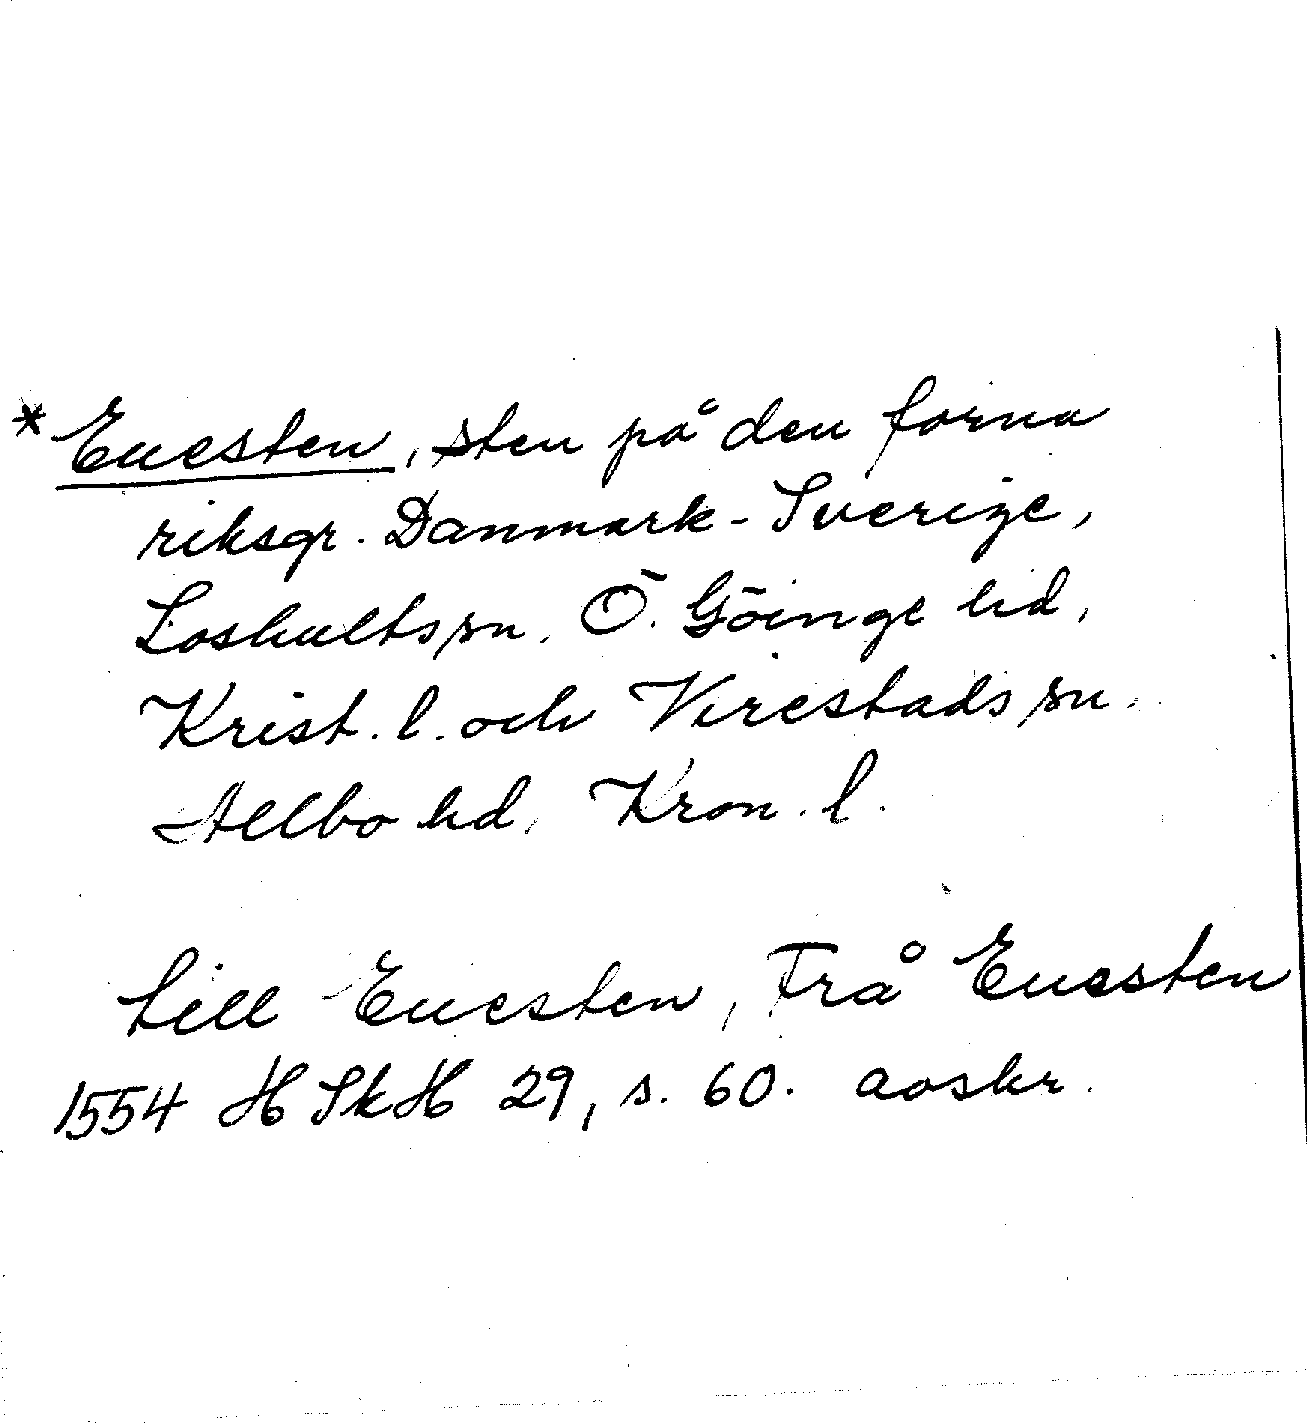 *Enesten, sten på den forna
riksgr. Danmark-Sverige,
Loshults sn. Ö. Göinge hd,
Krist. l. och Virestads sn.
Allbo hd, Kron. l.
till Enesten, Frå Enesten
1554 HSkH 29, s. 60. aoskr.